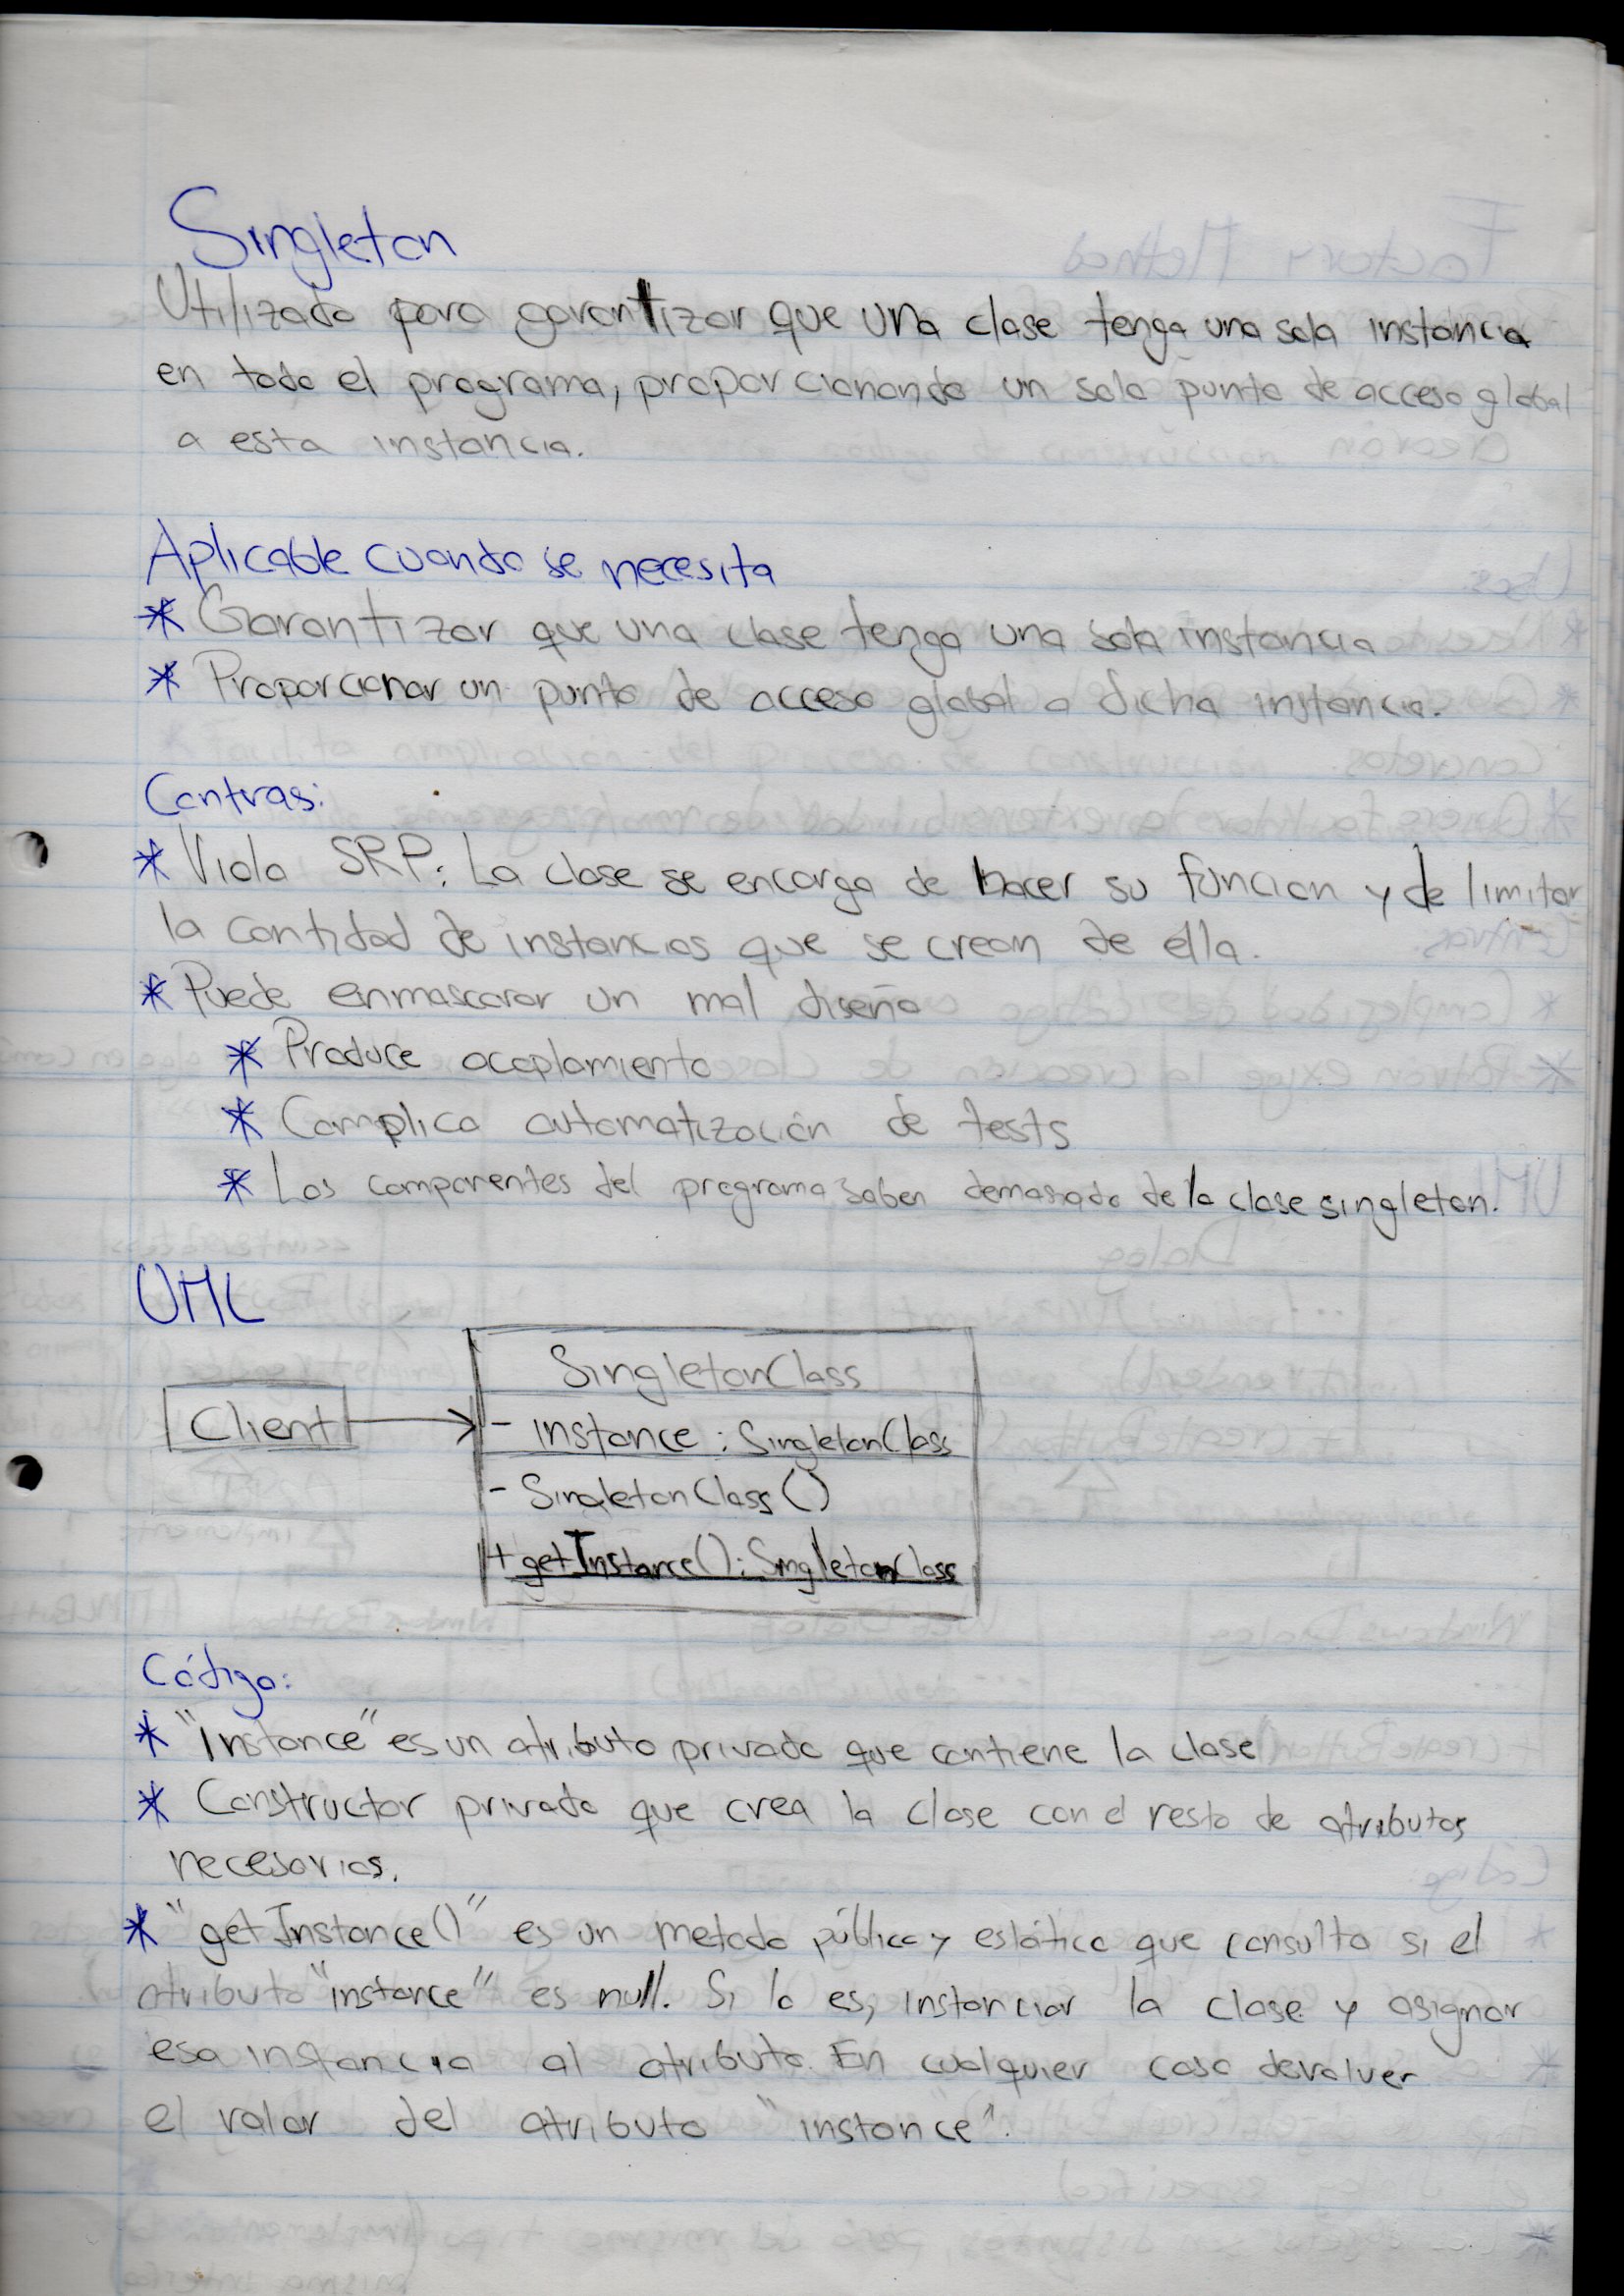 Singleton
Utilizado para garantizar que una clase tenga una sola instancia
en todo el programa, proporcionando un solo punto de acceso global
a esta instancia.
Aplicable cuando se necesita
* Garantizar que una clase tenga una sola instancia
* Proporcionar un punto de acceso global a dicha instancia.
Contras:
* Viola SRP: La clase se encarga de hacer su función y de limitar
la cantidad de instancias que se crean de ella.
* Puede enmascarar un mal diseño
* Produce acoplamiento
* Complica automatización de tests
* Los componentes del programa saben demasiado de la clase singleton.
UML
SingletonClass
Client
- instance : SingletonClass
- SingletonClass()
+ getInstance(): SingletonClass
Código:
* "Instance" es un atributo privado que contiene la clase
* Constructor privado que crea la clase con el resto de atributos
necesarios.
* "getInstance()" es un metodo público y estático que consulta si el
atributo "instance" es null. Si lo es, instanciar la clase y asignar
esa instancia al atributo. En cualquier caso devolver
el valor del atributo "instance".